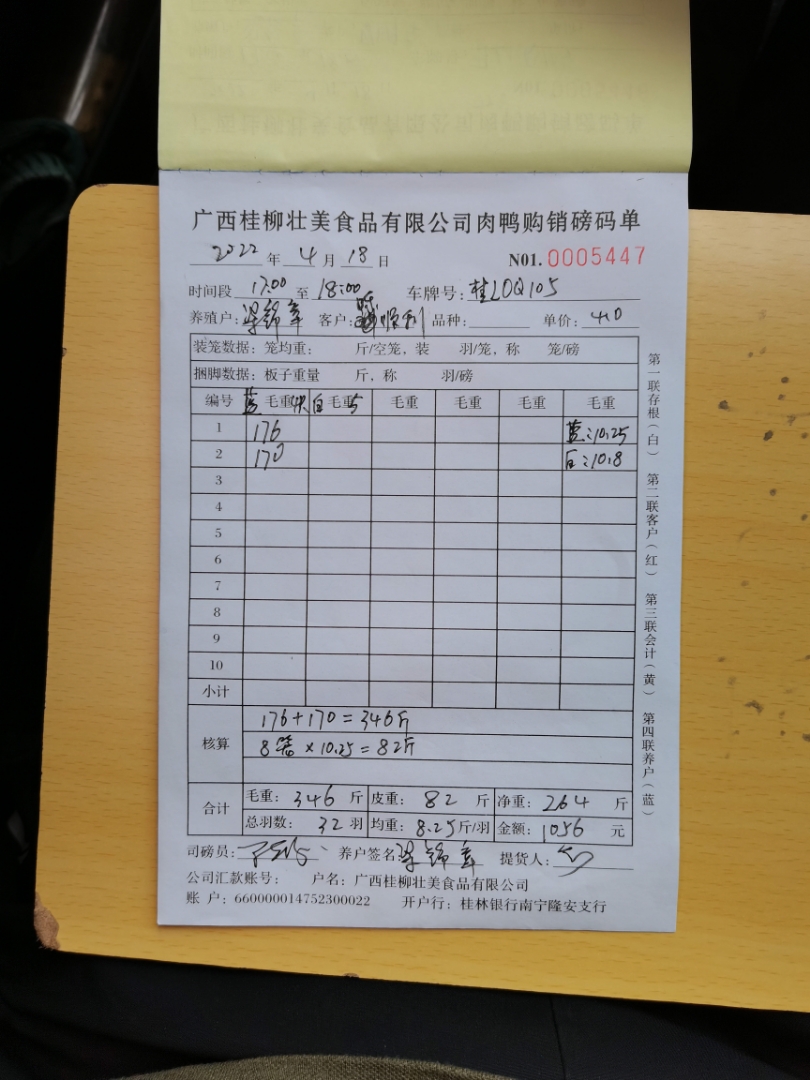 广西桂柳壮美食品有限公司肉鸭购销磅码单
2022 年 4 月 18 日 N01. 0005447
时间段 17:00 至 18:00 车牌号: 桂L0Q105
养殖户: 梁锦年 客户: 顺利 品种: 单价: 4.0
装笼数据: 笼均重: 斤/空笼, 装 羽/笼, 称 笼/磅
捆脚数据: 板子重量 斤, 称 羽/磅
编号 蓝 毛重 白 毛重 毛重 毛重 毛重 毛重
1 176 蓝:10.25
2 170 白:10.8
3
4
5
6
7
8
9
10
小计
核算 176+170=346斤
8笼×10.25=82斤
合计 毛重: 346 斤 皮重: 82 斤 净重: 264 斤
总羽数: 32 羽 均重: 8.25 斤/羽 金额: 1056 元
司磅员: 养户签名: 梁锦年 提货人:
公司汇款账号: 户名: 广西桂柳壮美食品有限公司
账 户: 660000014752300022 开户行: 桂林银行南宁隆安支行
第一联存根(白) 第二联客户(红) 第三联会计(黄) 第四联养户(蓝)